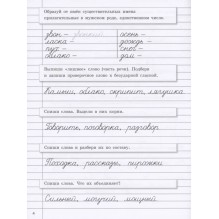 Образуй от имён существительных имена
прилагательные в мужском роде, единственном числе.
звон – звонкий осень –
ласка – дождь –
пух – снег –
облако – дом –
Выпиши «лишнее» слово (часть речи). Подбери
и запиши проверочное слово с безударной гласной.
Камыши, облако, скрипит, лягушка.
Спиши слова. Выдели в них корень.
Говорить, поговорка, разговор.
Спиши слова и разбери их по составу.
Походка, рассказы, пирожки
Спиши слова. Что их объединяет?
Сильный, могучий, мощный